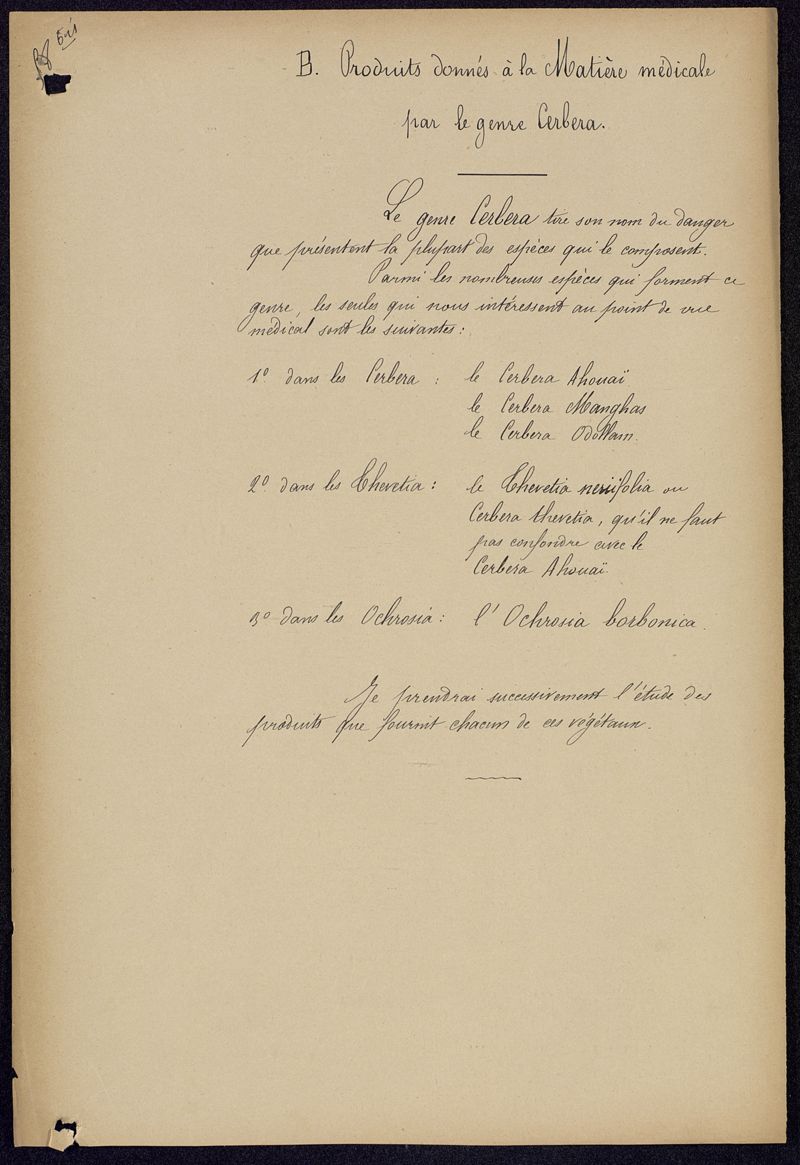 bis
B. Produits donnés à la Matière médicale
par le genre Cerbera.
Le genre Cerbera tire son nom du danger
que présentent la plupart des espèces qui le composent.
Parmi les nombreuses espèces qui forment ce
genre, les seules qui nous intéressent au point de vue
médical sont les suivantes :
1º dans les Cerbera : le Cerbera Ahouaï
le Cerbera Manghas
le Cerbera Odollam.
2º dans les Thevetia : le Thevetia neriifolia ou
Cerbera thevetia, qu'il ne faut
pas confondre avec le
Cerbera Ahouaï.
3º dans les Ochrosia : l'Ochrosia borbonica.
Je prendrai successivement l'étude des
produits que fournit chacun de ces végétaux.